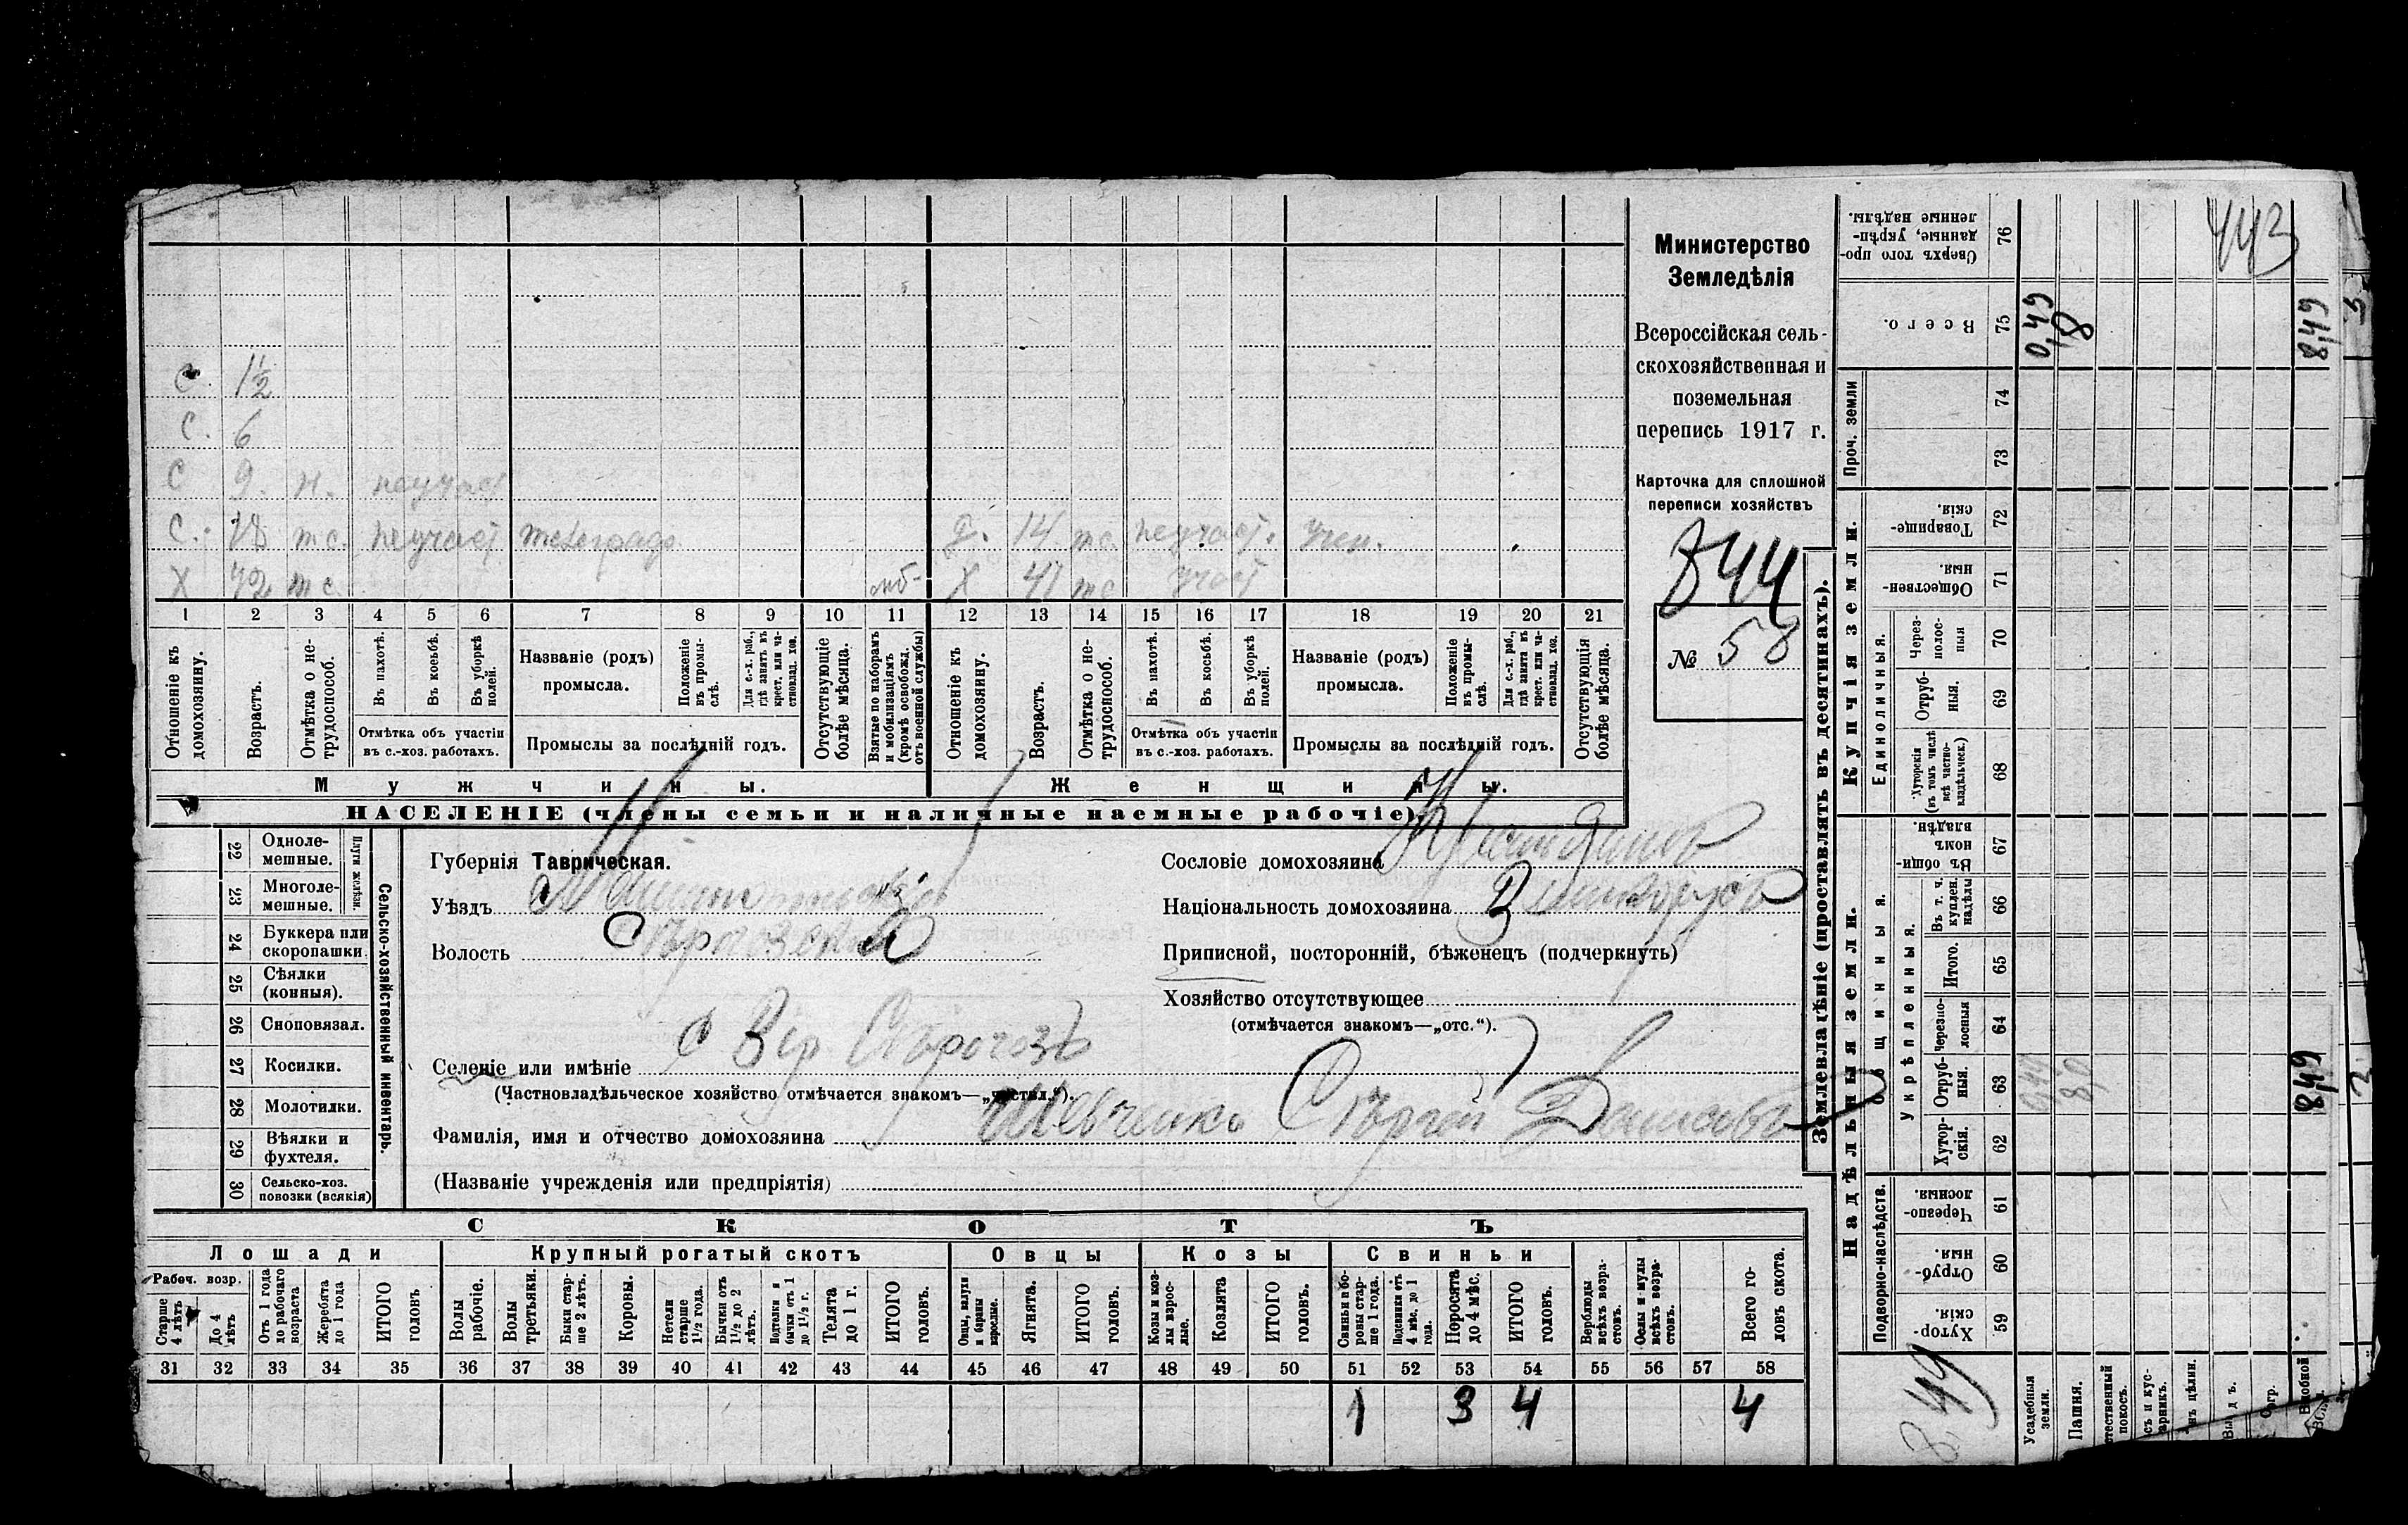 443
Министерство
Земледѣлія
Всероссійская сель-
скохозяйственная и
поземельная
перепись 1917 г.
Карточка для сплошной
переписи хозяйствъ
844
№ 58
С. 1½
С. 6
С 9. н. неучаст
С. 18 т с. неучаст телеграф. Д. 14 т с. неучаст. учен.
Х 42 т с. мб- Х 41 т с участ
1 2 3 4 5 6 7 8 9 10 11 12 13 14 15 16 17 18 19 20 21
Отношеніе къ домохозяину.
Возрастъ.
Отмѣтка о не-трудоспособ.
Въ пахотѣ.
Въ косьбѣ.
Въ уборкѣ полей.
Отмѣтка объ участіи въ с.-хоз. работахъ.
Названіе (родъ) промысла.
Положеніе въ промы-слѣ.
Для с.-х. раб., гдѣ занятъ въ крест. или ча-стновлад. хоз.
Промыслы за послѣдній годъ.
Отсутствующіе болѣе мѣсяца.
Взятые по наборамъ и мобилизаціямъ (кромѣ освобожд. отъ военной службы)
Отношеніе къ домохозяину.
Возрастъ.
Отмѣтка о не-трудоспособ.
Въ пахотѣ.
Въ косьбѣ.
Въ уборкѣ полей.
Отмѣтка объ участіи въ с.-хоз. работахъ.
Названіе (родъ) промысла.
Положеніе въ промы-слѣ.
Для с.-х. раб., гдѣ занята въ крест. или ча-стновлад. хоз.
Промыслы за послѣдній годъ.
Отсутствующія болѣе мѣсяца.
Мужчины. Женщины.
НАСЕЛЕНІЕ (члены семьи и наличные наемные рабочіе).
22 Одноле-мешные.
23 Многоле-мешные.
Плуги желѣзн.
24 Буккера или скоропашки.
25 Сѣялки (конныя).
26 Сноповязал.
27 Косилки.
28 Молотилки.
29 Вѣялки и фухтеля.
30 Сельско-хоз. повозки (всякія)
Сельско-хозяйственный инвентарь.
Губернія Таврическая.
Уѣздъ Мелитопольскій
Волость
Селеніе или имѣніе
(Частновладѣльческое хозяйство отмѣчается знакомъ—„частвл.“).
Сословіе домохозяина Крестьянинъ
Національность домохозяина
Приписной, посторонній, бѣженецъ (подчеркнуть)
Хозяйство отсутствующее
(отмѣчается знакомъ—„отс.“).
Фамилія, имя и отчество домохозяина Шевченко Сергей Денисовъ
(Названіе учрежденія или предпріятія)
СКОТЪ
Лошади Крупный рогатый скотъ Овцы Козы Свиньи
Рабоч. возр.
Старше 4 лѣтъ
До 4 лѣтъ
Отъ 1 года до рабочаго возраста
Жеребята до 1 года
ИТОГО головъ
Волы рабочіе.
Волы третьяки.
Быки стар-ше 2 лѣтъ.
Коровы.
Нетели старше 1½ года.
Бычки отъ 1½ до 2 лѣтъ.
Подтелки и бычки отъ 1 до 1½ г.
Телята до 1 г.
ИТОГО головъ.
Овцы, валухи и бараны взрослые.
Ягнята.
ИТОГО головъ.
Козы и коз-лы взрос-лые.
Козлята
ИТОГО головъ.
Свиньи и бо-ровы стар-ше 1 года.
Подсвинки отъ 4 мѣс. до 1 года.
Поросята до 4 мѣс.
ИТОГО головъ.
Верблюды всѣхъ возра-стовъ.
Ослы и мулы всѣхъ возра-стовъ.
Всего го-ловъ скота.
31 32 33 34 35 36 37 38 39 40 41 42 43 44 45 46 47 48 49 50 51 52 53 54 55 56 57 58
1 3 4 4
Землевладѣніе (проставлять въ десятинахъ).
Надѣльныя земли. Купчія земли. Проч. земли
Подворно-наслѣдств.
Общинныя.
Укрѣпленныя.
Единоличныя.
59 Хутор-скія.
60 Отруб-ныя.
61 Черезпо-лосныя.
62 Хутор-скія.
63 Отруб-ныя.
64 Черезпо-лосныя
65 Итого.
66 Въ т. ч. куплен. надѣлы
67 Въ общи-номъ владѣн.
68 Хуторскія (въ томъ числѣ всѣ частно-владѣльческ.)
69 Отруб-ныя.
70 Через-полос-ныя
71 Обществен-ныя.
72 Товарище-скія.
73
74
75 Всего.
76 Сверхъ того про-данные, укрѣп-ленные надѣлы.
Усадебныя земли. 0,49
Пашня. 8,0 8
8,49 8,49
8,49